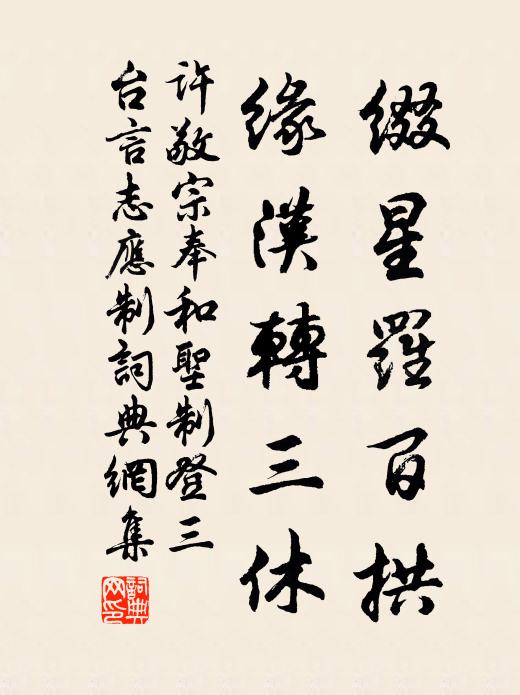 綴星羅百拱
緣漢轉三休
許敬宗奉和聖制登三
台言志應制詞典網集
詞典網印